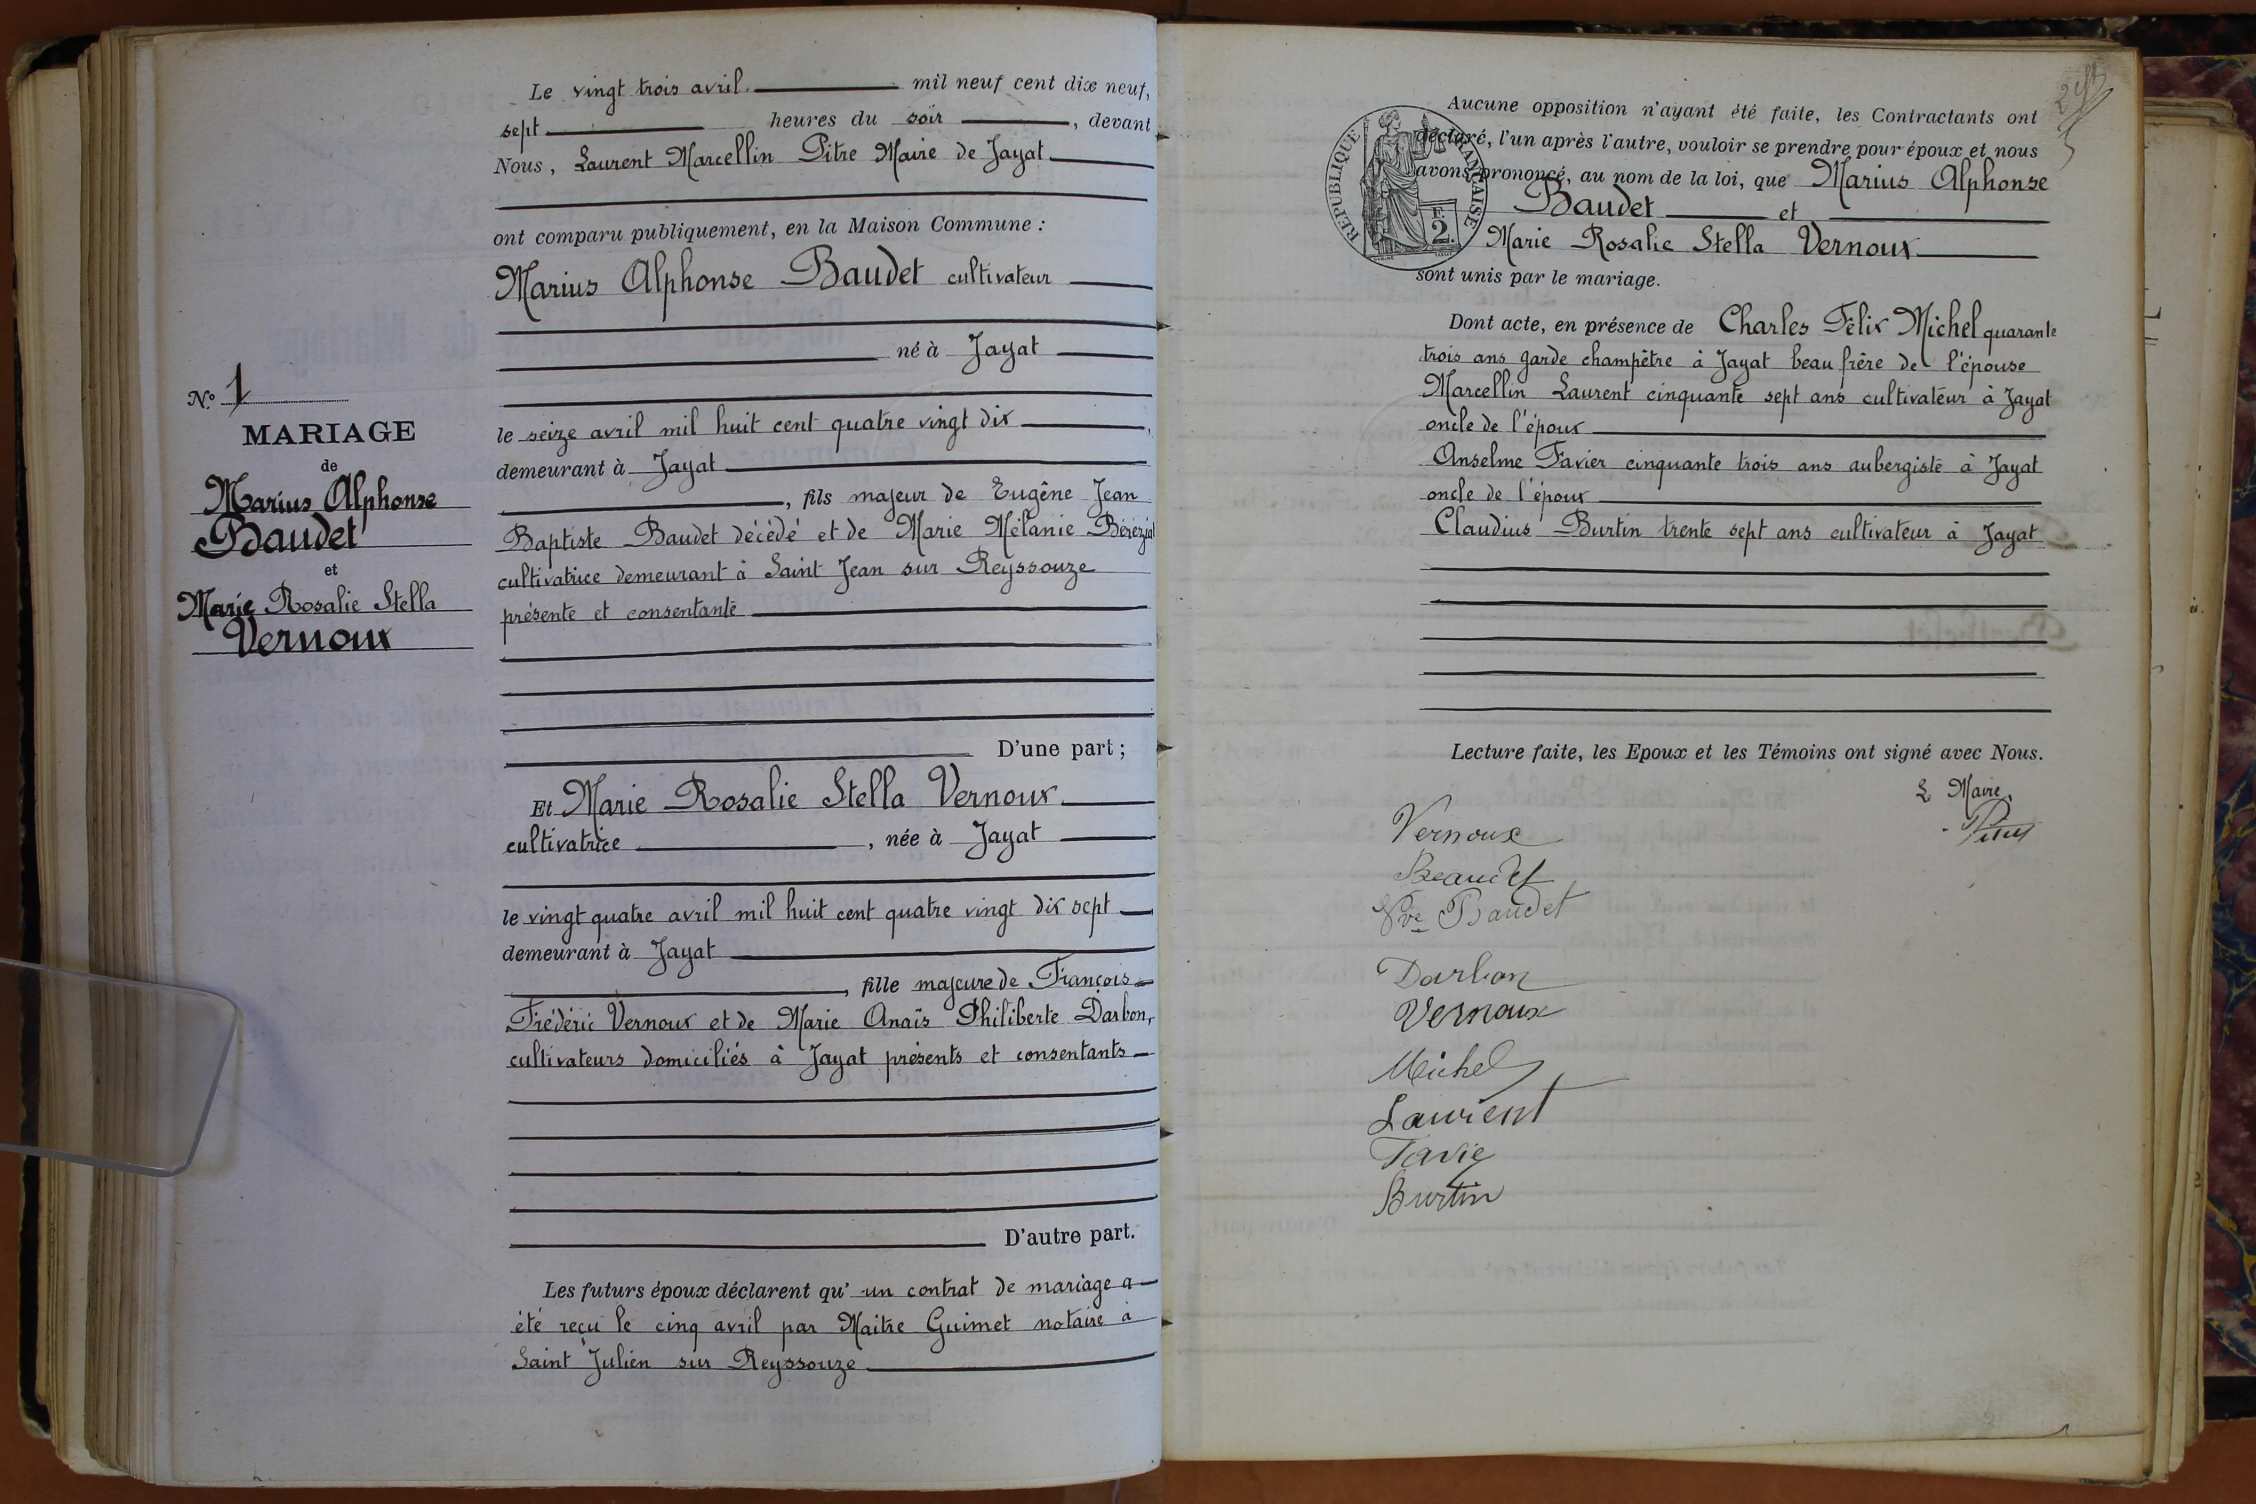 Le vingt trois avril mil neuf cent dix neuf,
sept heures du soir, devant
Nous, Laurent Marcellin Pitre Maire de Jayat
ont comparu publiquement, en la Maison Commune :
Marius Alphonse Baudet cultivateur
né à Jayat
le seize avril mil huit cent quatre vingt dix,
demeurant à Jayat
, fils majeur de Eugène Jean
Baptiste Baudet décédé et de Marie Mélanie Bérézia
cultivatrice demeurant à Saint Jean sur Reyssouze
présente et consentante
D'une part ;
Et Marie Rosalie Stella Vernoux
cultivatrice, née à Jayat
le vingt quatre avril mil huit cent quatre vingt dix sept
demeurant à Jayat
, fille majeure de François
Frédéric Vernoux et de Marie Anaïs Philiberte Darbon,
cultivateurs domiciliés à Jayat présents et consentants
D'autre part.
Les futurs époux déclarent qu'un contrat de mariage a
été reçu le cinq avril par Maitre Guimet notaire à
Saint Julien sur Reyssouze
N.º 1
MARIAGE
de
Marius Alphonse
Baudet
et
Marie Rosalie Stella
Vernoux
Aucune opposition n'ayant été faite, les Contractants ont
déclaré, l'un après l'autre, vouloir se prendre pour époux et nous
avons prononcé, au nom de la loi, que Marius Alphonse
Baudet et
Marie Rosalie Stella Vernoux
sont unis par le mariage.
RÉPUBLIQUE FRANÇAISE
F.
2.
Dont acte, en présence de Charles Félix Michel quarante
trois ans garde champêtre à Jayat beau frère de l'épouse
Marcellin Laurent cinquante sept ans cultivateur à Jayat
oncle de l'époux
Anselme Favier cinquante trois ans aubergiste à Jayat
oncle de l'époux
Claudius Burtin trente sept ans cultivateur à Jayat
Lecture faite, les Epoux et les Témoins ont signé avec Nous.
L Maire
Vernoux
Beaudet
Vve Baudet
Darbon
Vernoux
Michel
Laurent
Favie
Burtin